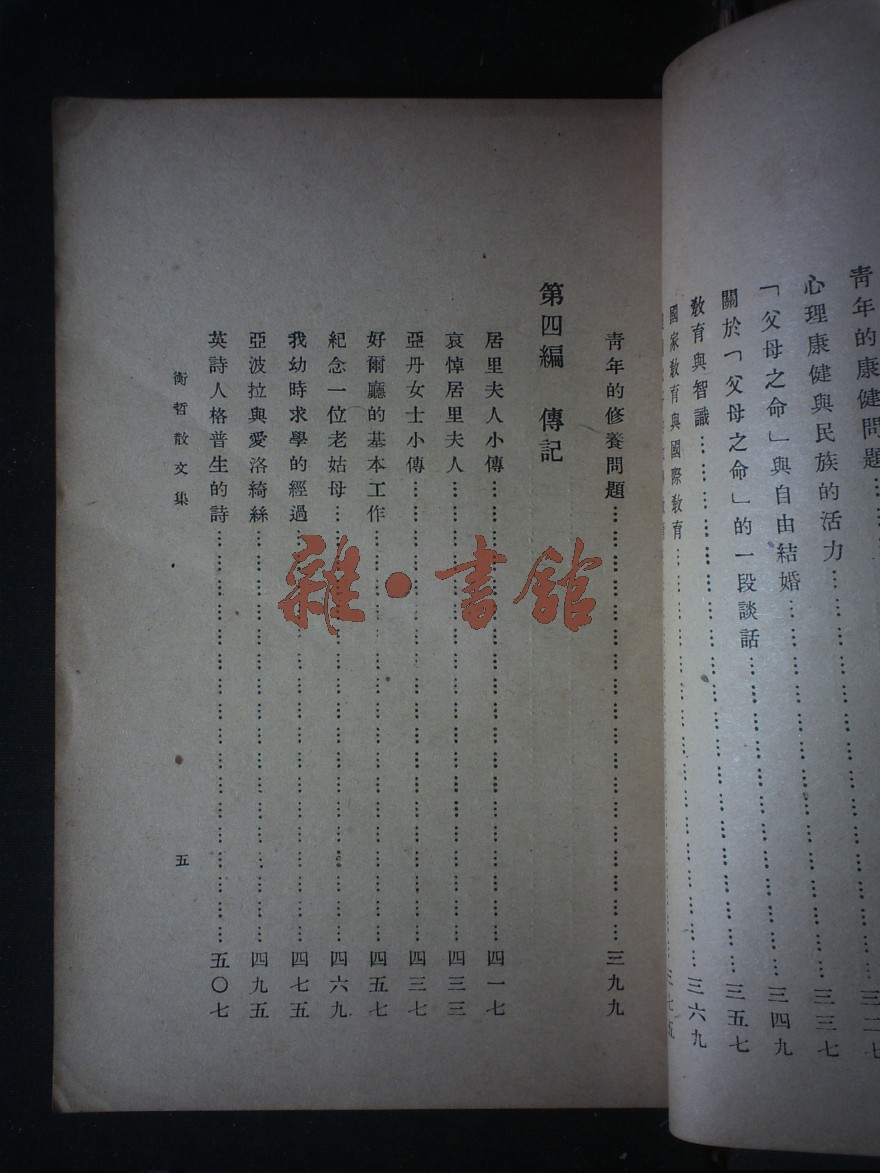 青年的康健問題⋯⋯三二七
心理康健與民族的活力⋯⋯三三七
「父母之命」與自由結婚⋯⋯三四九
關於「父母之命」的一段談話⋯⋯三五七
教育與智識⋯⋯三六九
國家教育與國際教育⋯⋯三七五
青年的修養問題⋯⋯三九九
第四編　傳記
居里夫人小傳⋯⋯四一七
哀悼居里夫人⋯⋯四三三
亞丹女士小傳⋯⋯四三七
好爾廳的基本工作⋯⋯四五七
紀念一位老姑母⋯⋯四六九
我幼時求學的經過⋯⋯四七五
亞波拉與愛洛綺絲⋯⋯四九五
英詩人格普生的詩⋯⋯五〇七
衡哲散文集
五
雜·書館